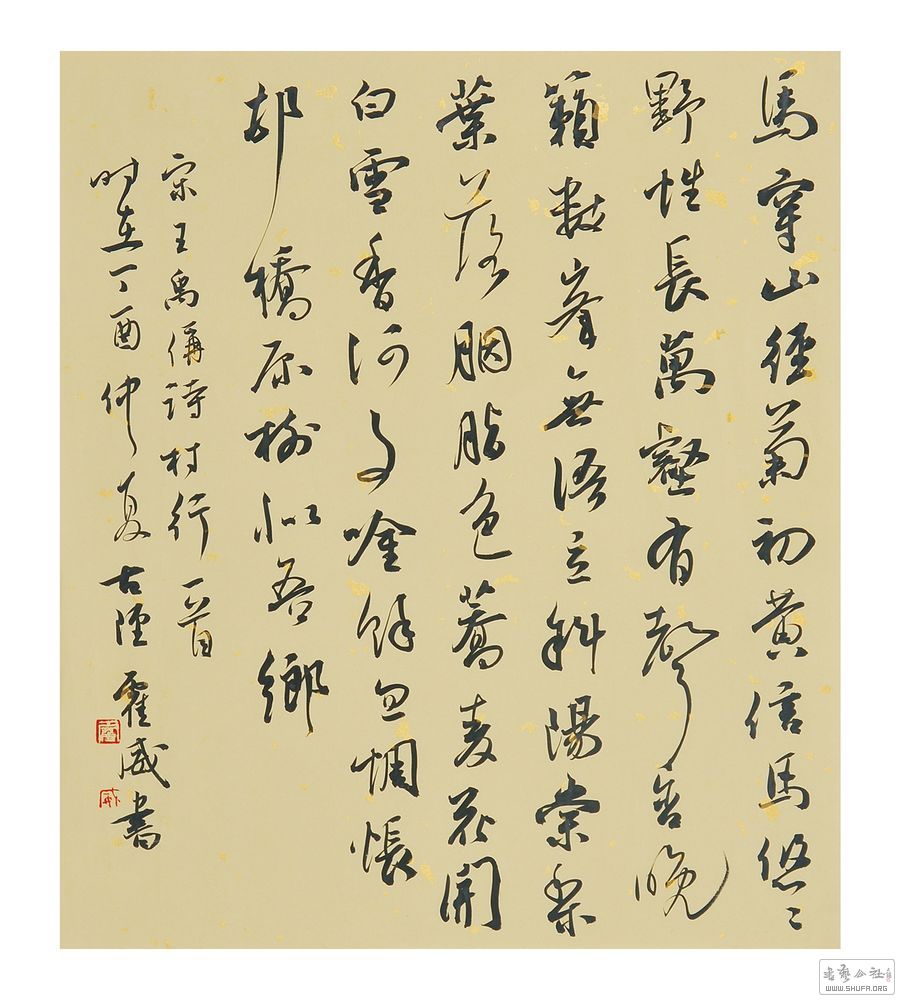 馬穿山徑菊初黄信馬悠〻
野性長萬壑有聲含晚
籟數峯無語立斜陽棠梨
葉落胭脂色蕎麦花開
白雪香何事唫餘忽惆悵
邨橋原樹似吾鄉
宋王禹偁詩村行一首
时在丁酉仲夏古陘霍威書
WWW.SHUFA.ORG